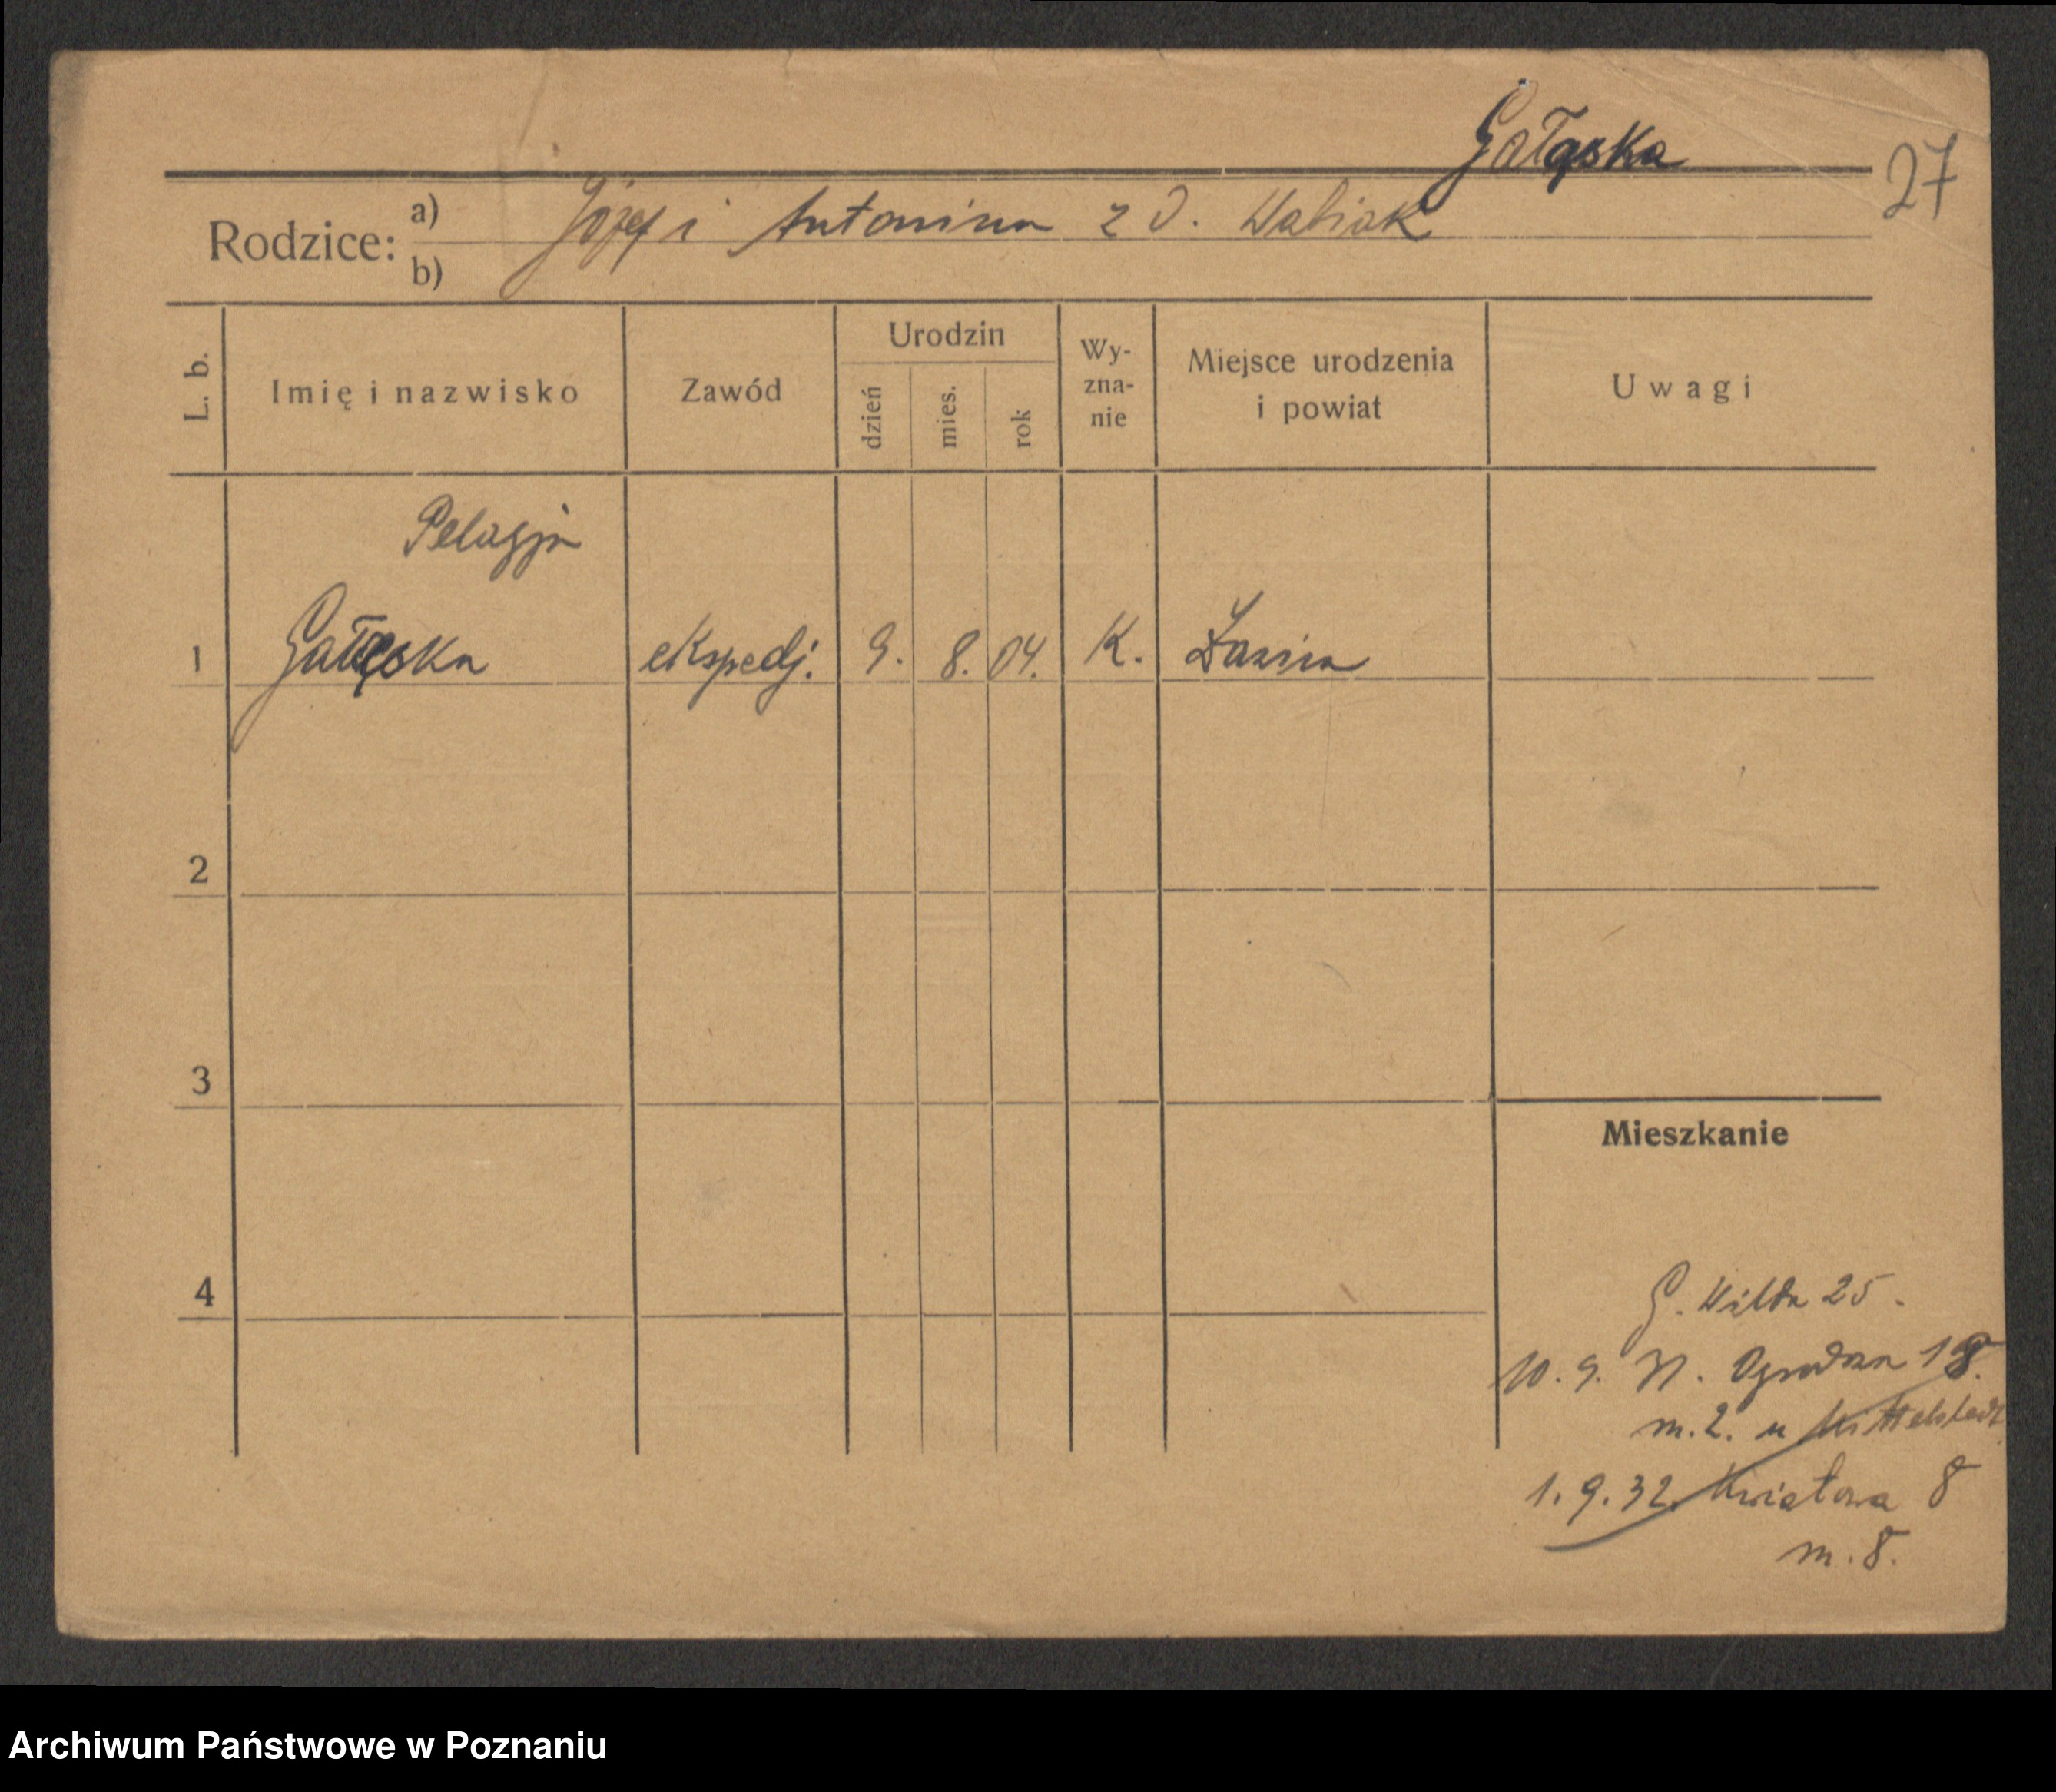 Gałąska
27
Rodzice:
a) Józef i Antonina z d. Waliak
b)
L. b.
Imię i nazwisko
Zawód
Urodzin
dzień
mies.
rok
Wy-
zna-
nie
Miejsce urodzenia
i powiat
Uwagi
Pelagja
1 Gałąska ekspedj. 9. 8. 04. K.
2
3
Mieszkanie
4
G. Wilda 25.
10. 9. 31. Ogrodowa 18.
m. 2. u
1. 9. 32. Kwiatowa 8
m. 8.
Archiwum Państwowe w Poznaniu